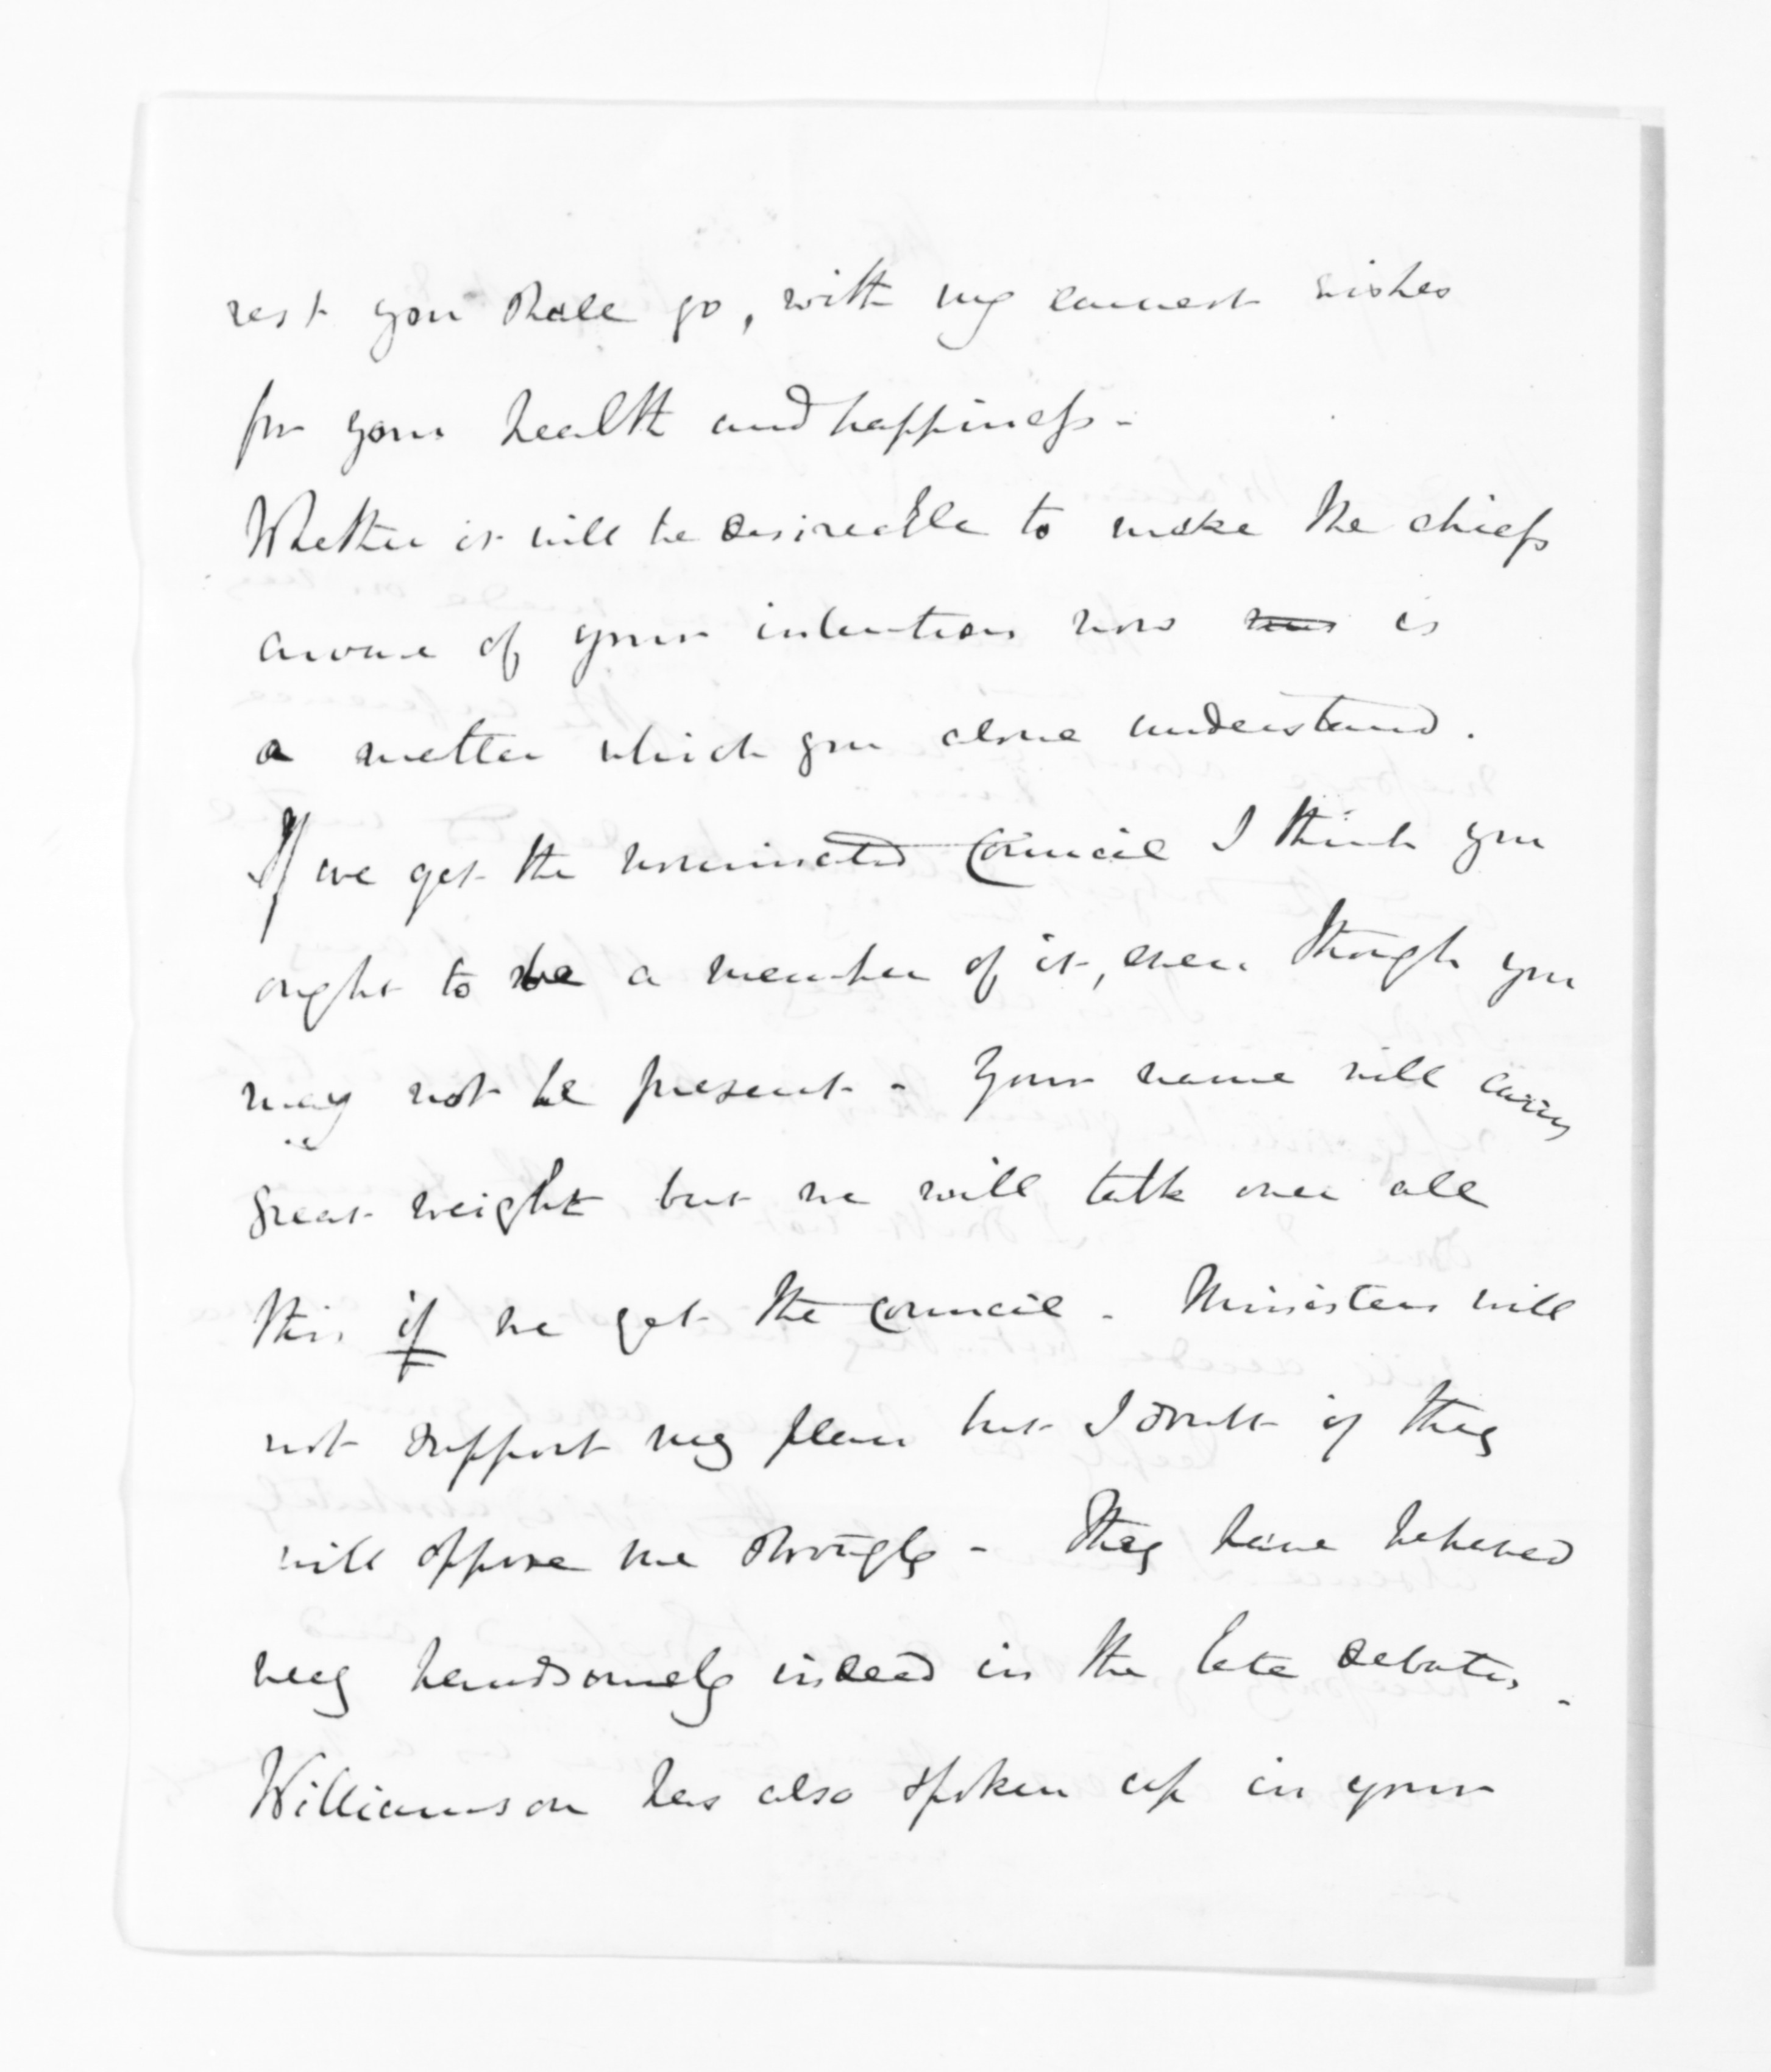 rest you shall go, with my earnest wishes
for your health and happiness -
Whether it will be desireable to make the chiefs
aware of your intention now is
a matter which you alone understand.
If we get the nominated Council I think you
ought to be a member of it, even though you
may not be present - Your name will carry
great weight but we will talk over all
this if we get the Council - Ministers will
not support my plan but I doubt if they
will oppose me strongly - They have behaved
very handsomely indeed in the late debates.
Williamson has also spoken up in your